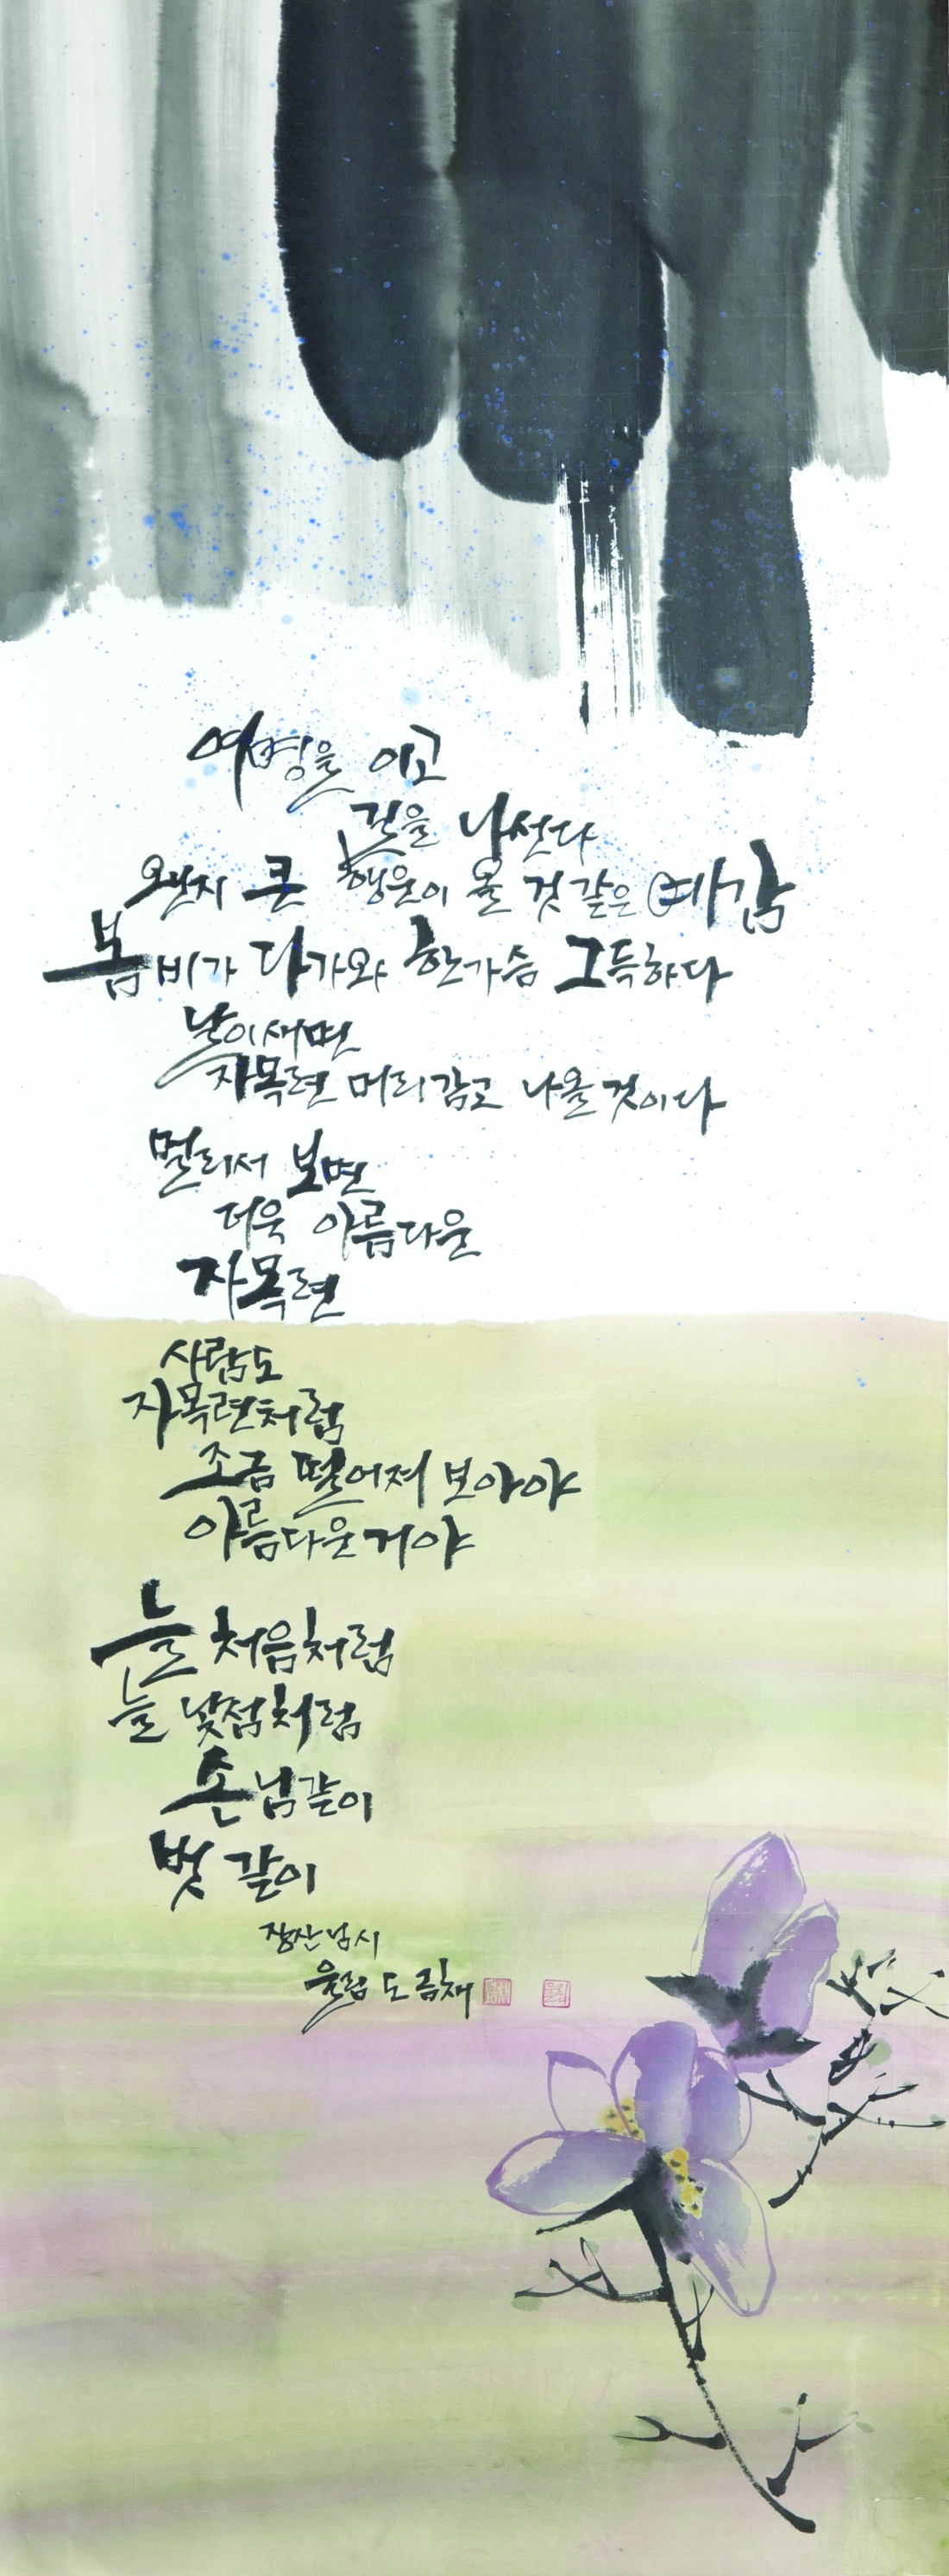 여명을 이고
길을 나선다
왠지 큰 행운이 올 것 같은 예감
봄비가 다가와 한가슴 그득하다
날이새면
자목련 머리감고 나올것이다
멀리서 보면
더욱 아름다운
자목련
사람도
자목련처럼
조금 떨어져 보아야
아름다운거야
늘 처음처럼
늘 낯섬처럼
손님같이
벗 같이
장산님시
울림 도 금채